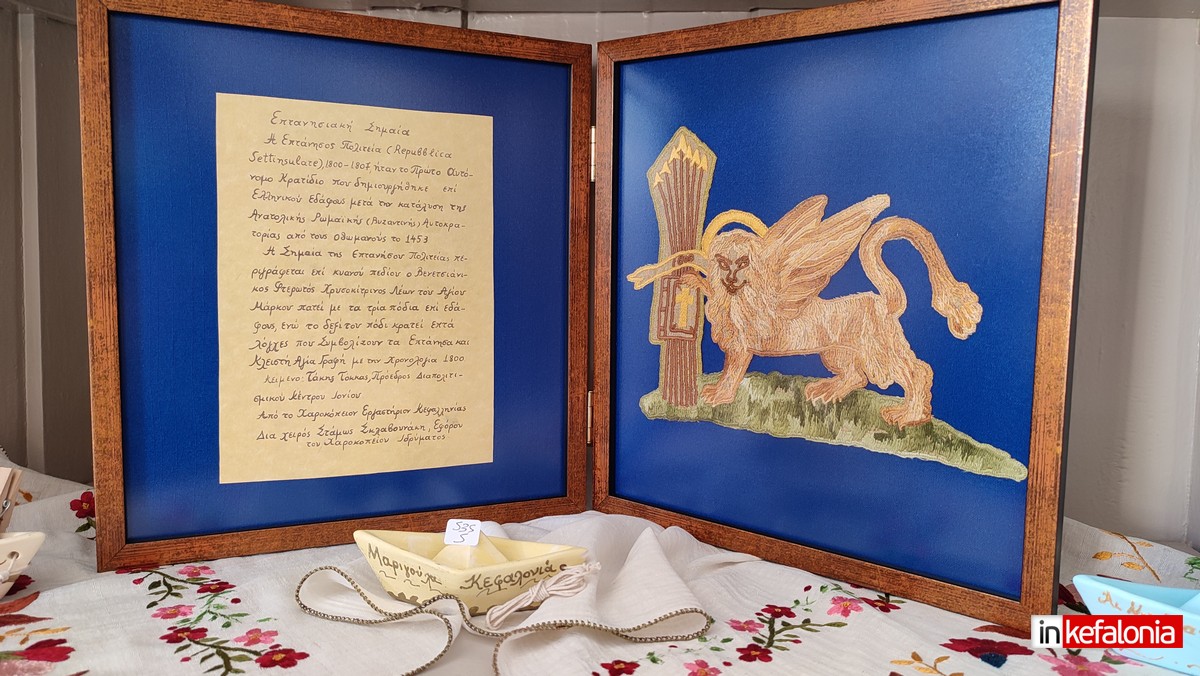 Επτανησιακή Σημαία
Η Επτάνησος Πολιτεία (Repubblica
Settinsulate), 1800-1807 ήταν το Πρώτο Αυτό-
νομο Κρατίδιο που δημιουργήθηκε επί
Ελληνικού εδάφους μετά την κατάλυση της
Ανατολικής Ρωμαϊκής (Βυζαντινής) Αυτοκρα-
τορίας από τους οθωμανούς το 1453
Η Σημαία της Επτανήσου Πολιτείας πε-
ργράφεται επί κυανού πεδίου ο Βενετσιάνι-
κος Φτερωτός Χρυσοκίτρινος Λέων του Αγίου
Μάρκου πατεί με τα τρία πόδια επί εδά-
φους, ενώ το δεξί του πόδι κρατεί επτά
λόγχες που συμβολίζουν τα Επτάνησα και
Κλειστή Αγία Γραφή με την Χρονολογία 1800
Κείμενο: Τάκης Τόκκας, Πρόεδρος Διαπολιτι-
σμικού Κέντρου Ιονίου
Από το Χαροκόπειον Εργαστήριον Κεφαλληνίας
Δια χειρός Στάμως Σκλαβουνάκη, Εφόρου
του Χαροκοπείου Ιδρύματος
535
5
Μαριγούλα Κεφαλονιάς
inkefalonia